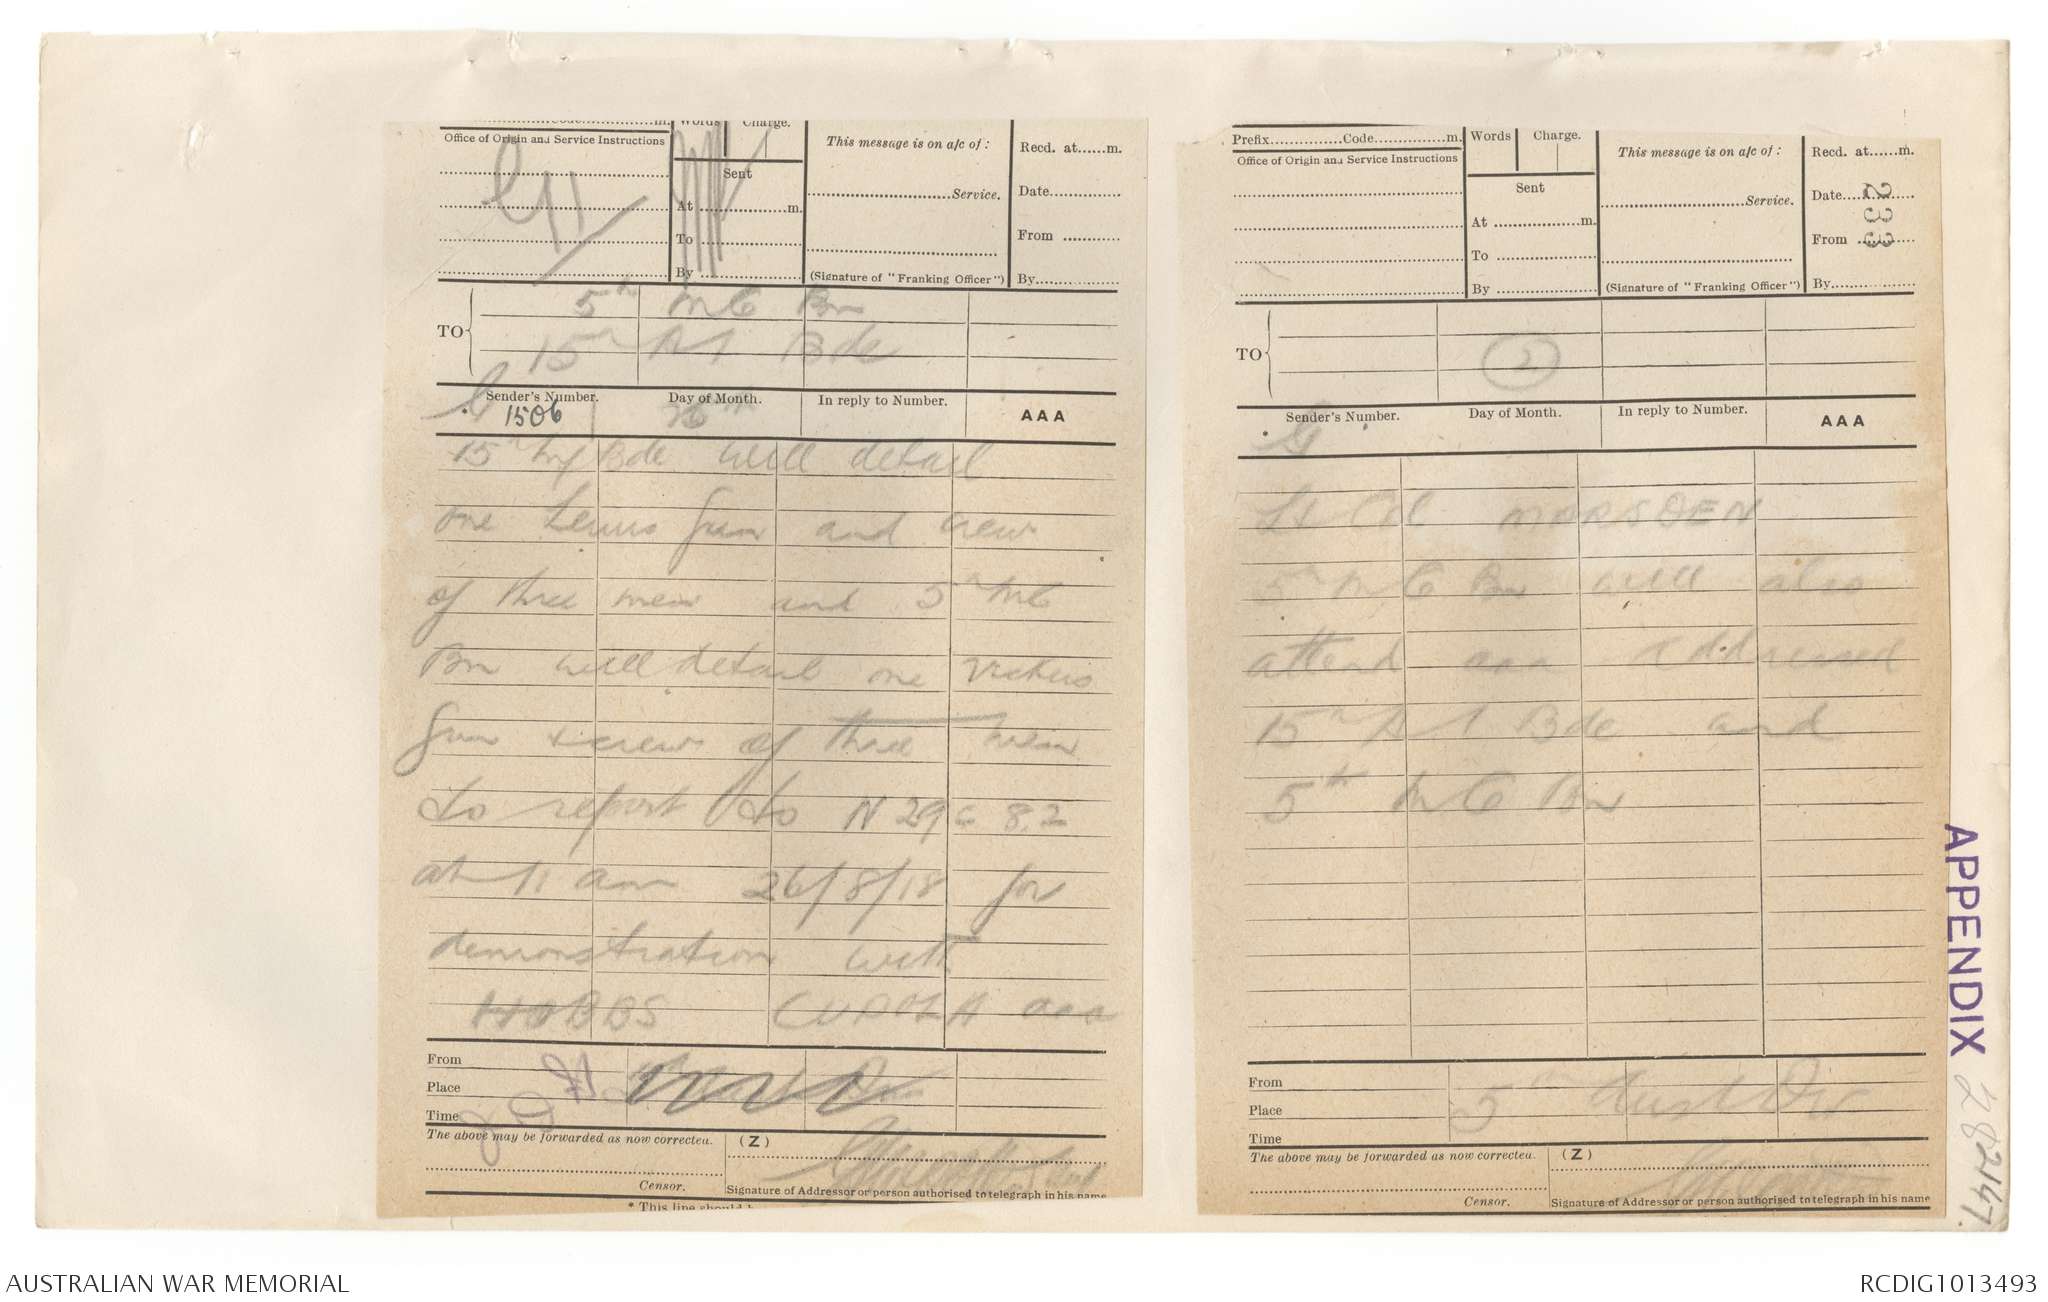 Code m. Words Charge.
Office of Origin and Service Instructions
Sent
At m.
To
By
This message is on a/c of :
Service.
(Signature of "Franking Officer")
Recd. at m.
Date
From
By
TO
5th M G Bn
15th A I Bde
Sender's Number. Day of Month. In reply to Number. AAA
G 1506
15th Inf Bde will detail
one Lewis Gun and crew
of three men and 5th MG
Bn will detail one Vickers
Gun & crew of three men
to report to N 29 c 8.2
at 11 am 26/8/18 for
demonstration with
HOBBS CUPOLA aaa
From
Place
Time
The above may be forwarded as now corrected. (Z)
Censor. Signature of Addressor or person authorised to telegraph in his name
* This line should b
Prefix Code m. Words Charge.
Office of Origin and Service Instructions
Sent
At m.
To
By
This message is on a/c of :
Service.
(Signature of "Franking Officer")
Recd. at m.
Date
From
By
233
TO
2
Sender's Number. Day of Month. In reply to Number. AAA
G
Lt Col MARSDEN
5th M G Bn will also
attend aaa Addressed
15th A I Bde and
5th M G Bn
From
Place
Time
5th Aust Div
The above may be forwarded as now corrected. (Z)
Censor. Signature of Addressor or person authorised to telegraph in his name
APPENDIX 282147.
AUSTRALIAN WAR MEMORIAL
RCDIG1013493